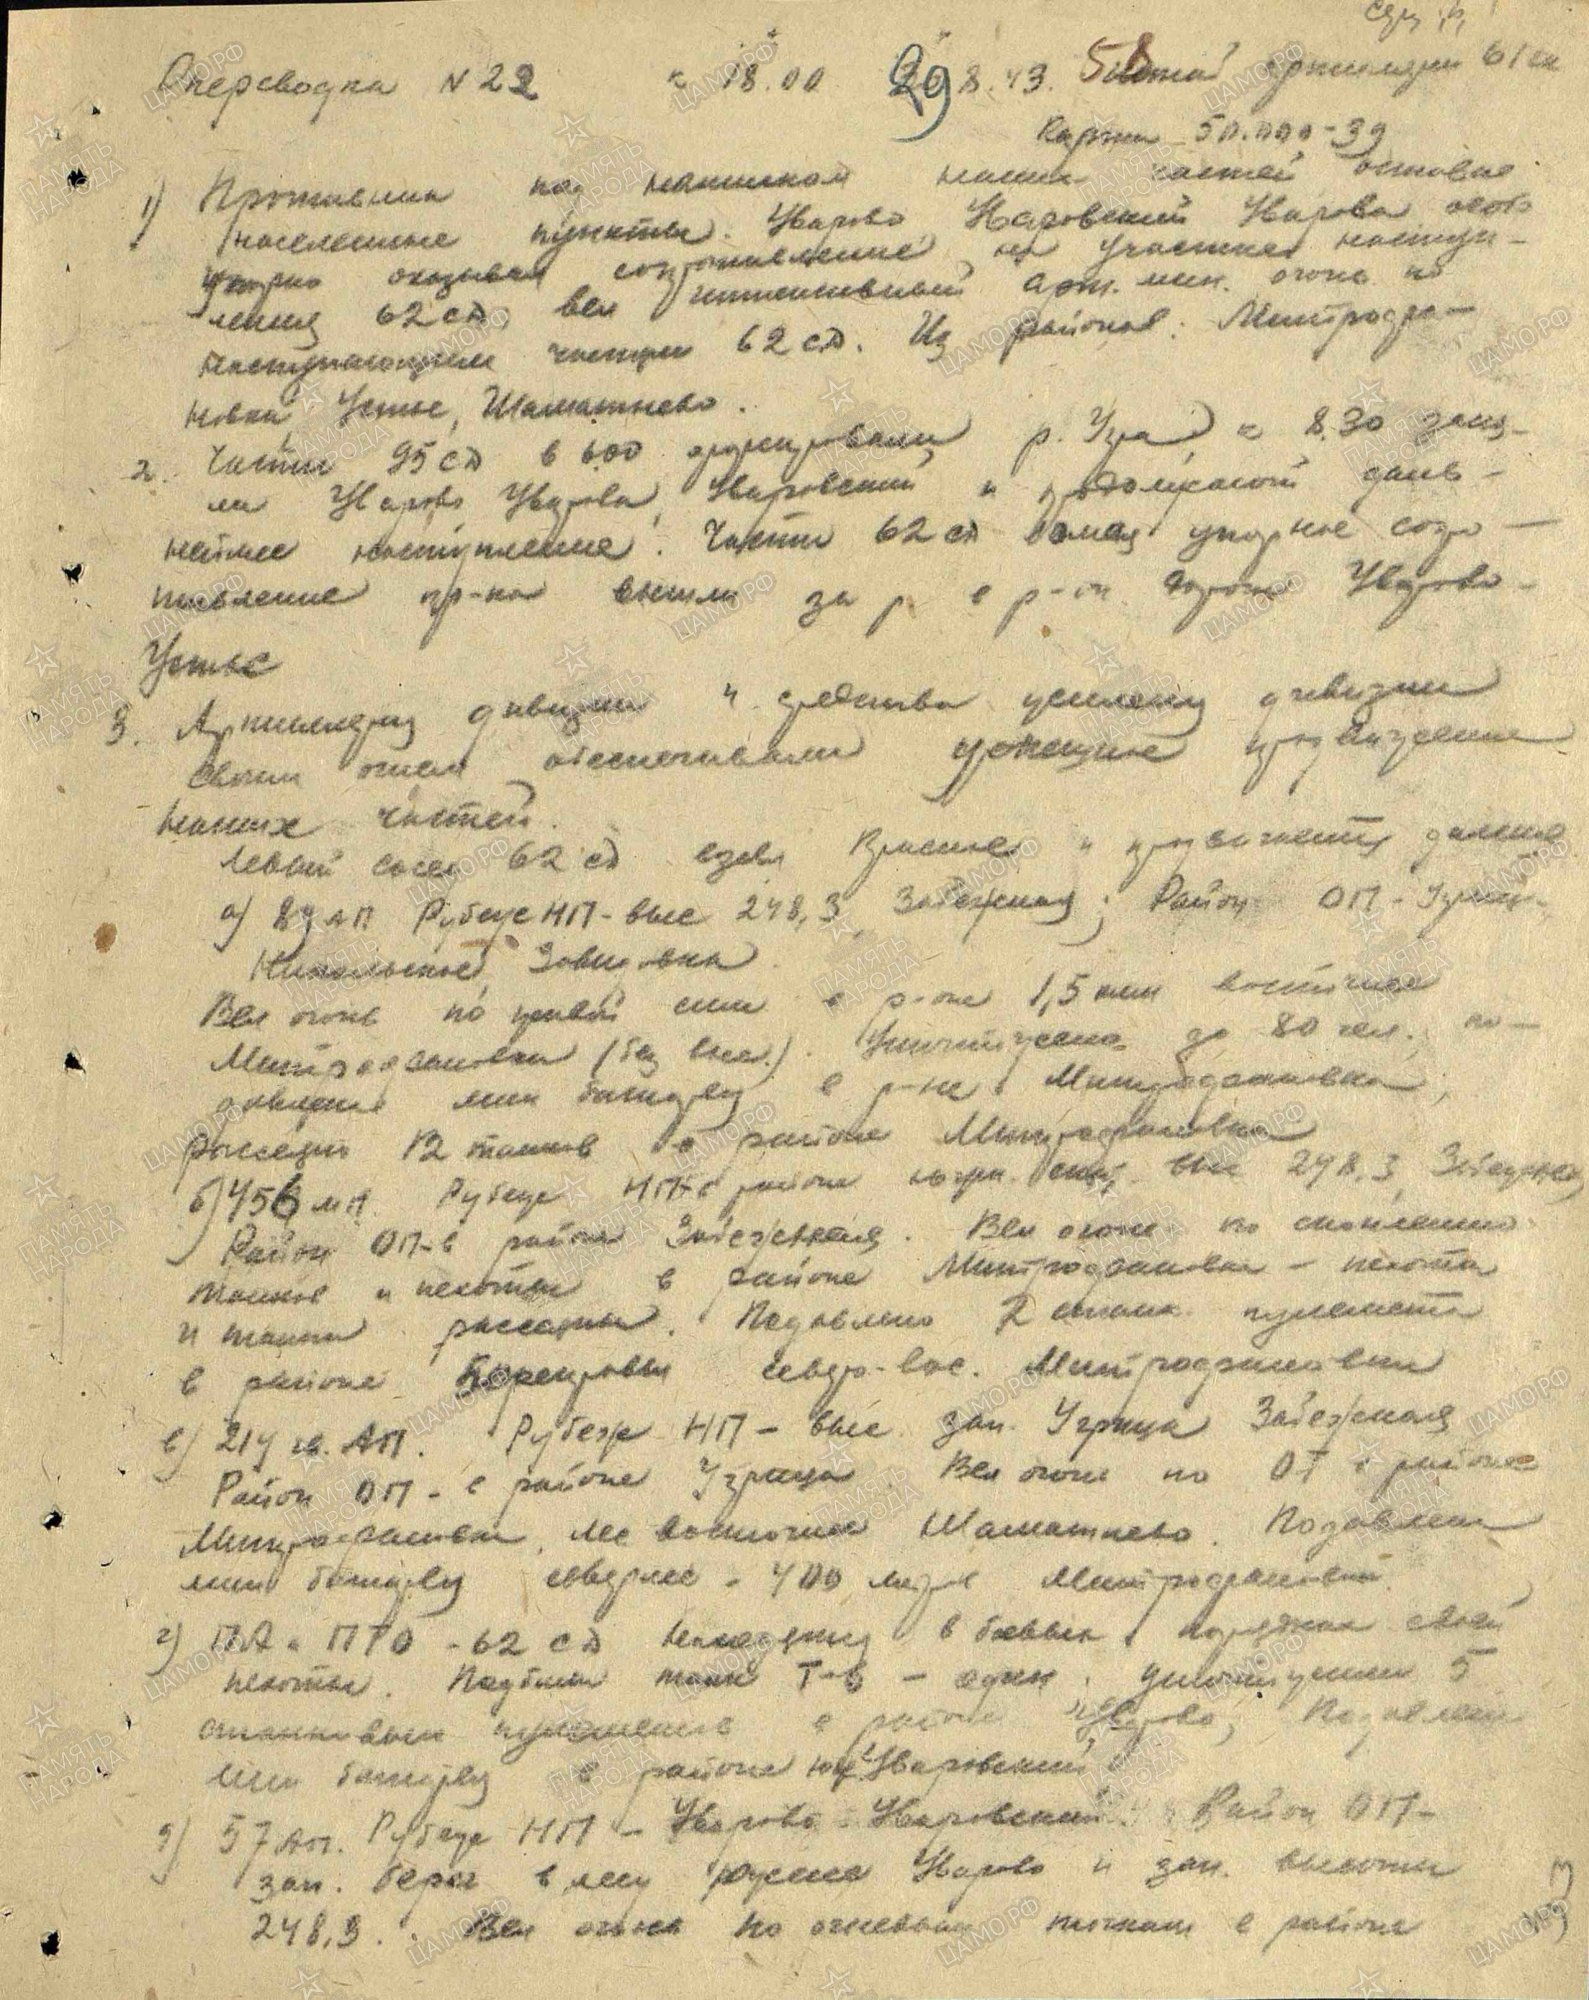 Оперсводка N 22 к 18.00 29 8.43. артиллерии 61 ск
Карта 50.000-39
1) Противник под натиском наших частей оставив
населенные пункты: Уварово, Уваровский, Уварова особо
упорно оказывая сопротивление на участке наступ-
ления 62 сд, вел интенсивный арт. мин. огонь по
наступающим частям 62 сд. Из районов: Митрофа-
новка, Устье, Шаматнево.
2. Части 95 сд в 6.00 форсировали р. Угра, к 8.30 заня-
ли Уварово, Уварова, Уваровский и продолжают даль-
нейшее наступление. Части 62 сд ломая упорное сопро-
тивление пр-ка вышли за р. в р-он дороги Уварово-
Устье
3. Артиллерия дивизии и средства усиления дивизии
своим огнем обеспечивали успешное продвижение
наших частей.
Левый сосед 62 сд взял Красное и продвигается дальше
а) 89 АП Рубеж НП - выс 248,3, Забежная; Район ОП - Угрица,
Никольское,
Вел огонь по живой силе в р-оне 1,5 км восточнее
Митрофановки (без выс.). Уничтожено до 80 чел., по-
давлена мин батарея в р-не Митрофановка,
рассеяно 12 танков в районе Митрофановка
б) 456 мп. Рубеж НП в районе выс 248.3, Забежная
Район ОП - в районе Забежная. Вел огонь по скоплению
танков и пехоты в районе Митрофановка - пехота
и танки рассеяны. Подавлено 2 станк. пулемета
в районе северо-вос. Митрофановки
в) 214 гв. АП. Рубеж НП - выс. зап. Угрица, Забежная
Район ОП - в районе Угрица. Вел огонь по ОТ в районе
Митрофановки, лес восточнее Шаматнево. Подавлена
мин батарея севернее - 400 метров Митрофановки.
г) ПА и ПТО - 62 сд находятся в боевых порядках своей
пехоты. Подбили танк - один, уничтожили 5
станковых пулеметов в районе Уварово, Подавлена
мин батарея в районе юж Уваровский.
д) 57 ап. Рубеж НП - Уварово - Уваровский. Район ОП -
зап. берег в лесу южнее Уварово и зап. высоты
248,3. Вел огонь по огневым точкам в районе